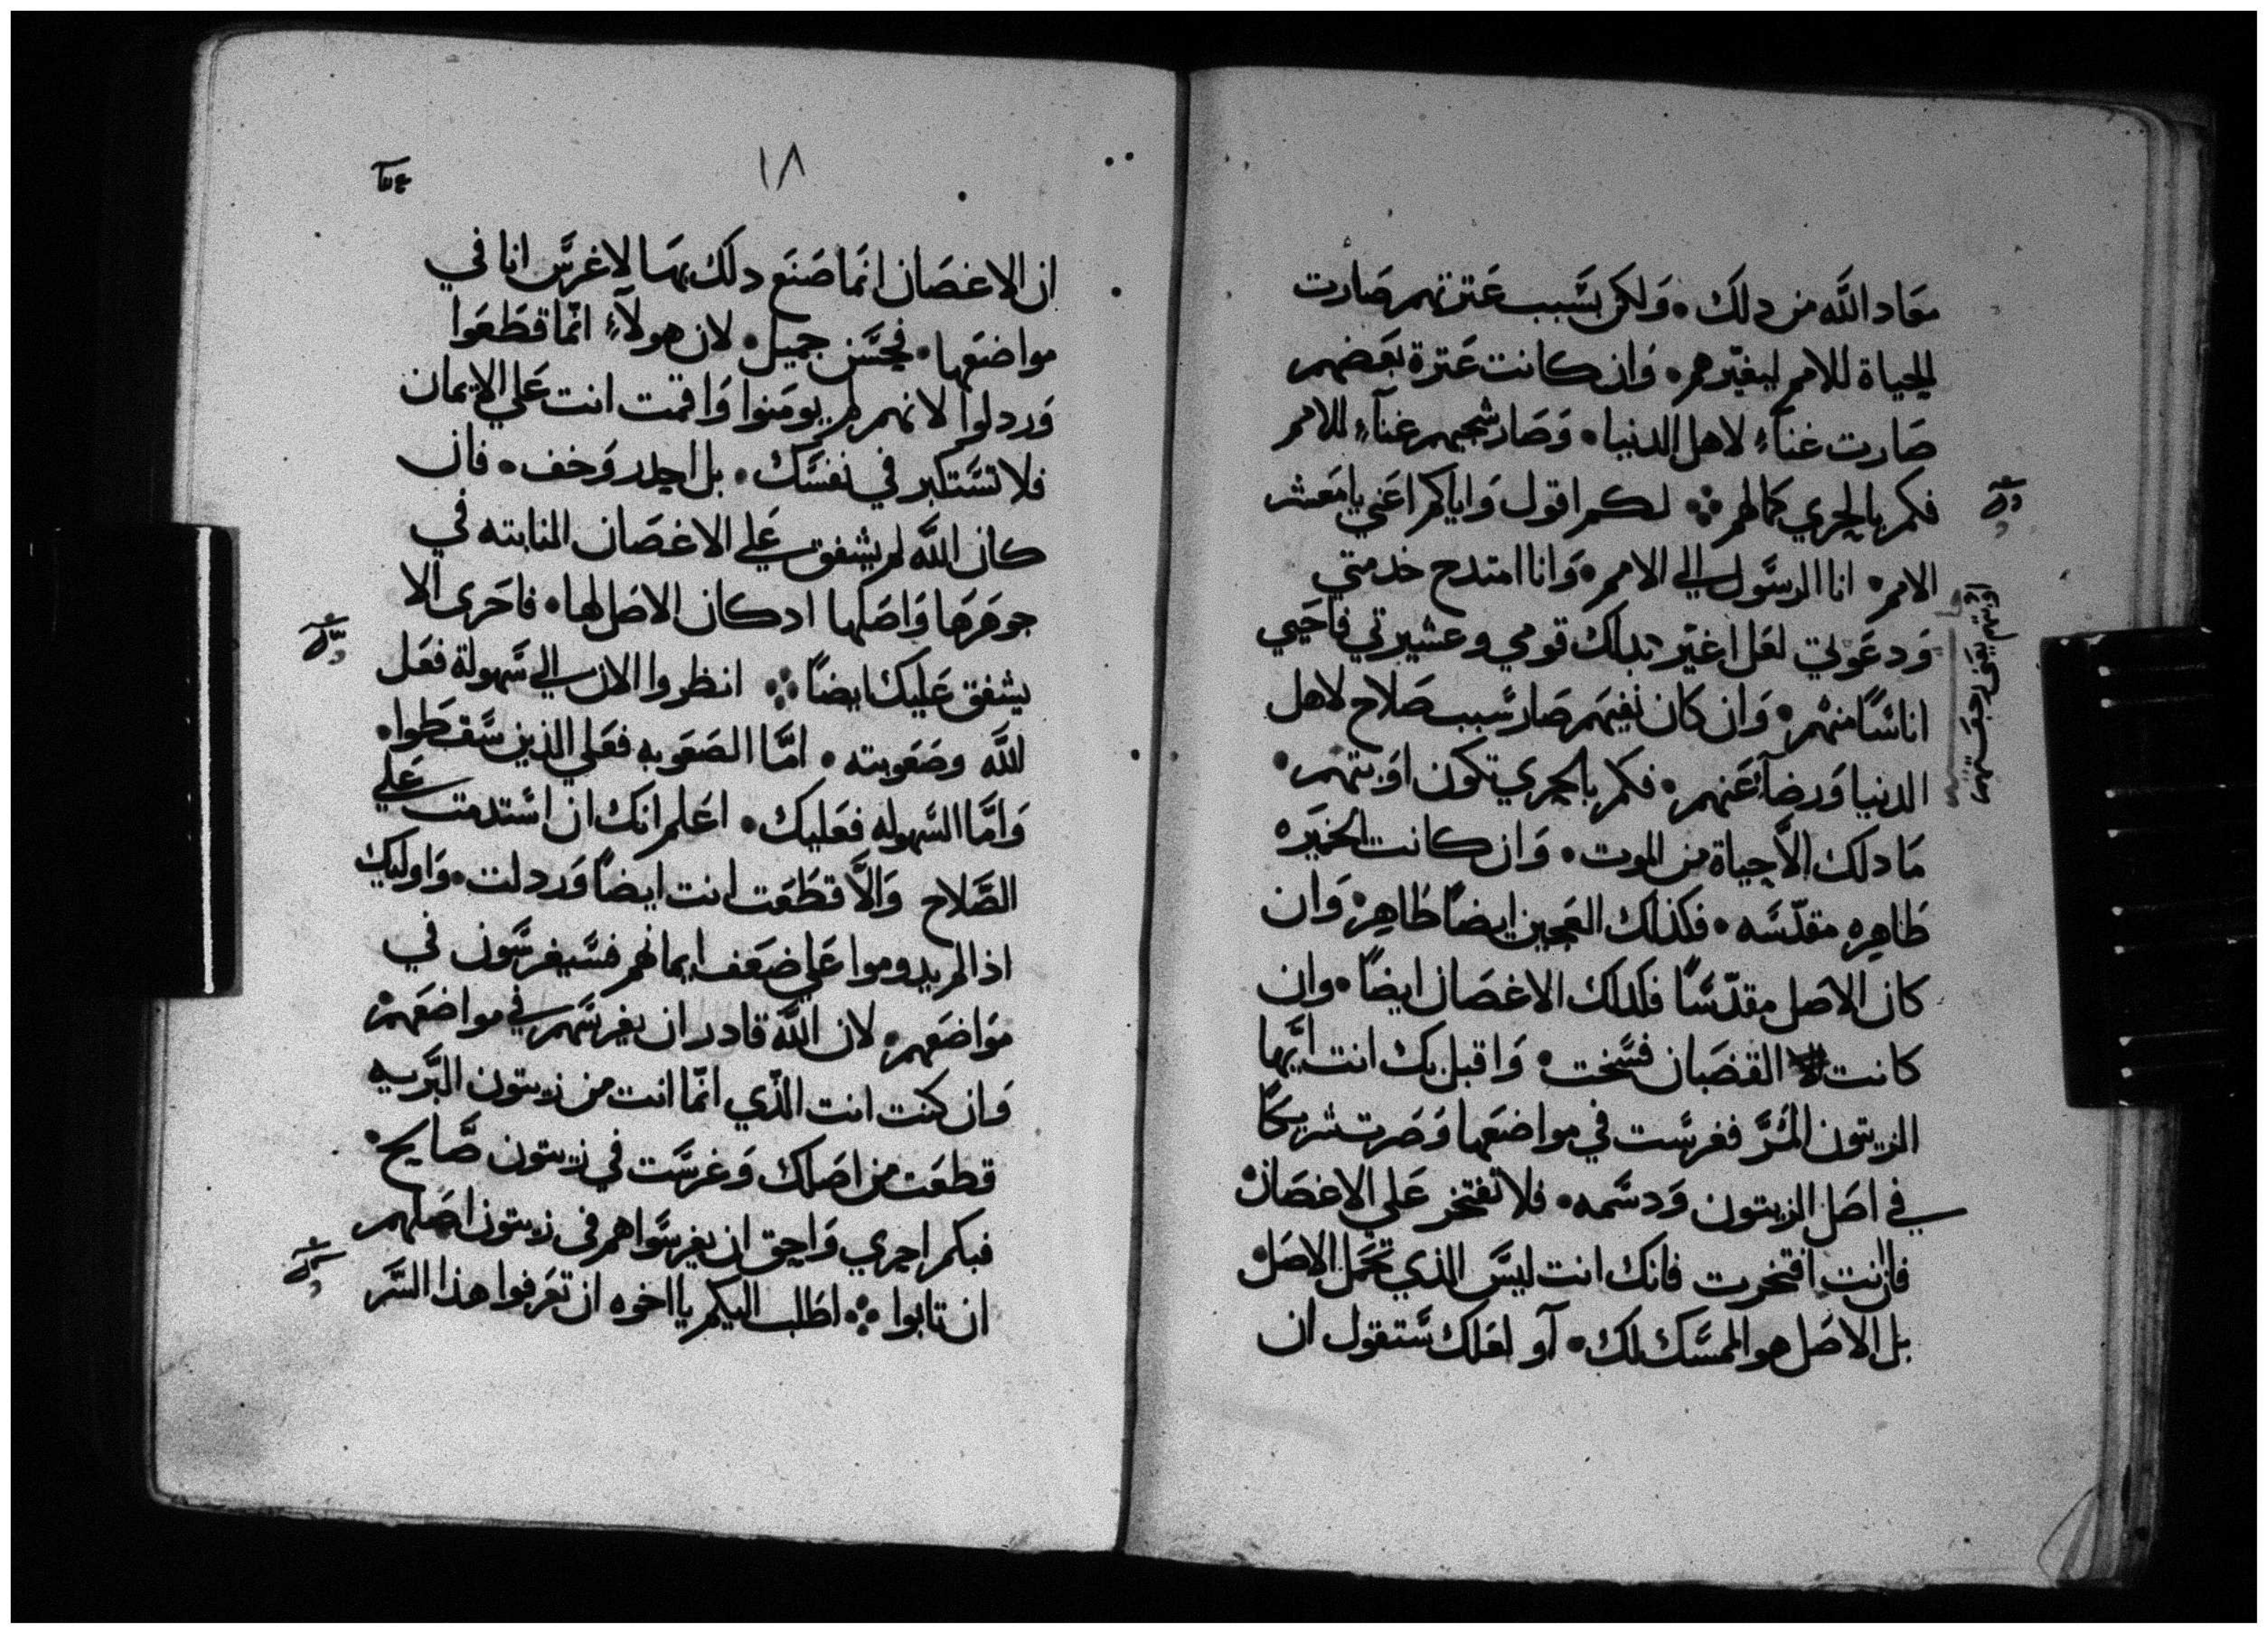 معاد الله من دلك • وَلكن بسَّبب عَترتهم صَارت
الحياة للامم ليغيّرهم • وَان كانت عَترة بعَضهم
صَارت غناءً لاهل الدنيا • وَصَار شجبهم غناءً للامم
فكم بالحري كمالهم ܀ لكم اقول وَاياكم اعَني يا معَشر
الامم • انا الرسَّول الي الامم • وَانا امتدح خدمتي
وَدعَوتي لعَل اغيّر بدلك قومي وعشيرتي فاحَيي
اناسًّا منهم • وَان كان نفيهَم صَار سَّبب صَلاح لاهل
الدنيا وَرضاءً عَنهم • فكم بالحري تكون اوَبتهم •
مَا دلك الاَّ حياة من الموت • وَان كانت الخميَره
طَاهِره مقدّسَّه • فكذلك العَجين ايضاً طَاهِره وَان
كان الاصَل مقدّسَّاً فكدلك الاغصَان ايضاً • وان
كانت القضبَان فسَّخت • وَاقبل بك انت ايَّها
الزيتون المُرَّ فغرسَّت في مواضعَها وَصَرت شريكاً
في اصَل الزيتون وَدسَّمه • فلا تفتخر عَلي الاغصَان
فان انت افتخرت فانك انت ليسَّ الذي تحمَل الاصَل
بل الاصَل هو الممسَّك لك • آو لعَلك سَّتقول ان
١٨
ان الاغصَان انمَا صَنعَ دلك بهَا لاغرسَّ انا في
مواضعَها • فحسَّن جميل • لان هولآءِ انمّا قطَعَوا
وَردلوا لانهم لم يومَنوا وَاقمت انت عَلي الايمان
فلا تسَّتكبر في نفسَّك • بل احدر وَخف • فان
كان الله لم يشفق عَلي الاغصَان النابته في
جوهَرهَا وَاصَلها ادكان الاصَل لها • فاحَرى الا
يشفق عَليك ايضاً ܀ انظروا الان الي سَّهولة فعَل
الله وصَعَوبته • امَّا الصَعَوبه فعَلي الذين سَّقطَوا •
وَامَّا السَّهوله فعَليك • اعَلم انك ان اسَّتدمت عَلي
الصَّلاح وَالاَّ قطَعَت انت ايضاً وَردلت • وَاوليك
اذا لم يدوموا عَلي ضعَف ايمانهم فسَّيغرسَّون في
مَوَاضعَهم • لان الله قادر ان يغرسَّهم في مواضعَهم
وَان كنت انت الذّي انمّا انت من زيتون البَّريه
قطعَت من اصَلك وَغرسَّت في زيتون صَّالح •
فبكم احري وَاحق ان يغرسَّوا هم في زيتون اصَلهم
ان تابوا ܀ اطَلب اليكم يا اخوه ان تعَرفوا هذا السَّر